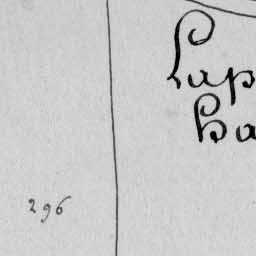 Lup
ha
296